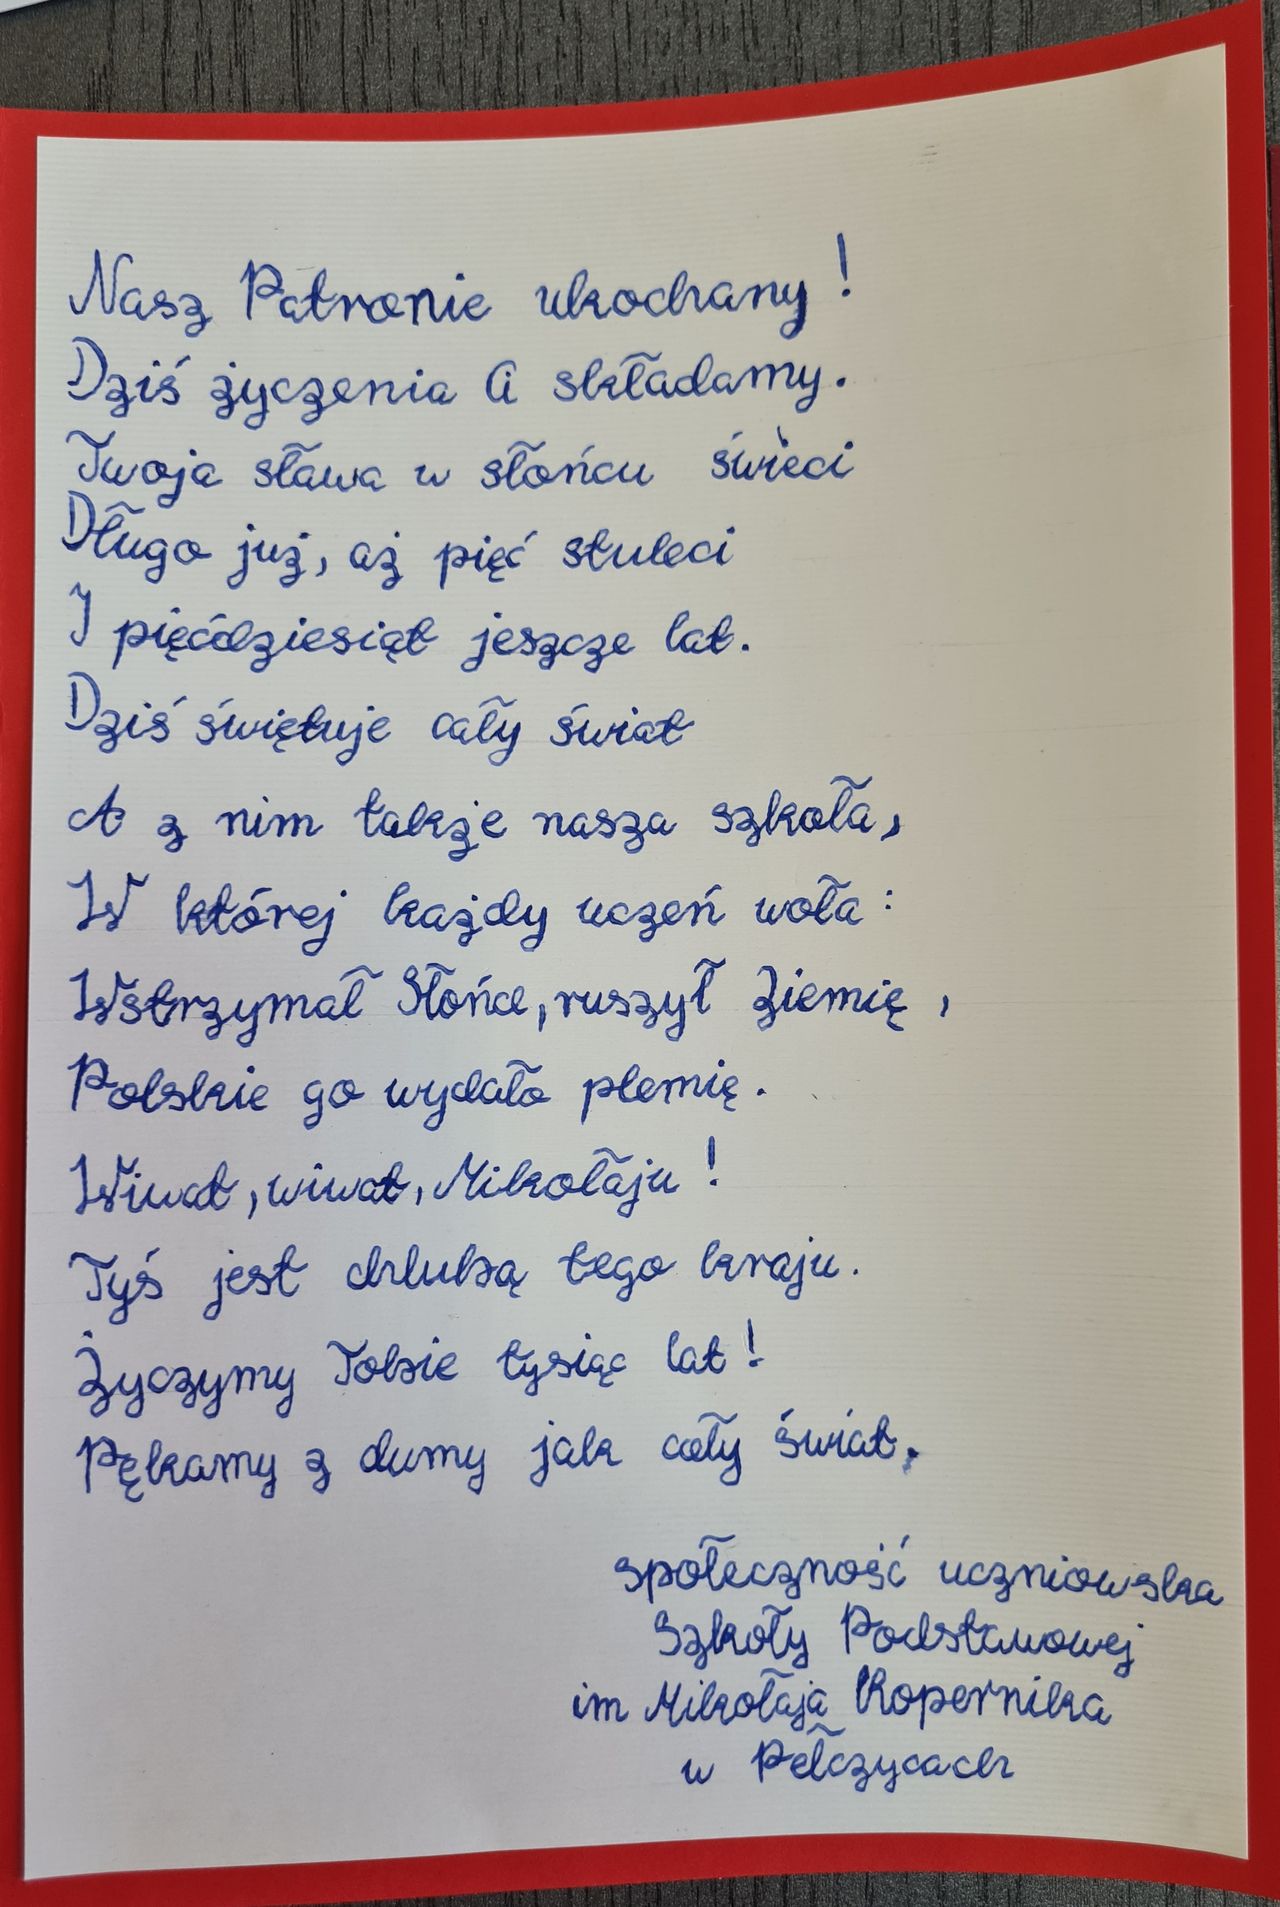 Nasz Patronie ukochany!
Dziś życzenia Ci składamy.
Twoja sława w słońcu świeci
Długo już, aż pięć stuleci
I pięćdziesiąt jeszcze lat.
Dziś świętuje cały świat
A z nim także nasza szkoła,
W której każdy uczeń woła:
Wstrzymał Słońce, ruszył Ziemię,
Polskie go wydało plemię.
Wiwat, wiwat, Mikołaju!
Tyś jest chlubą tego kraju.
Życzymy Tobie tysiąc lat!
Pękamy z dumy jak cały świat.
społeczność uczniowska
Szkoły Podstawowej
im Mikołaja Kopernika
w Pełczycach